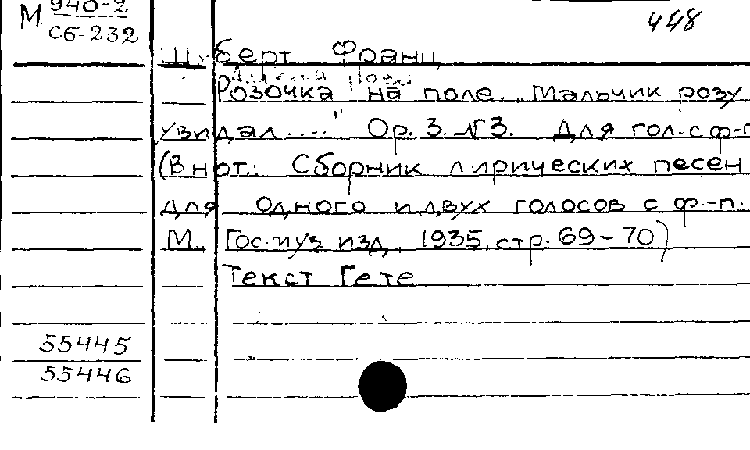 М 940-2
Сб-232
448
Шуберт Франц
Розочка на поле. „Мальчик розу
увидал...." Op. 3 №3. Для гол. с ф-п
(В нот: Сборник лирических песен
для одного и двух голосов с ф.-п.
М. Гос. муз. изд. 1935, стр. 69-70)
Текст Гете
55445
55446